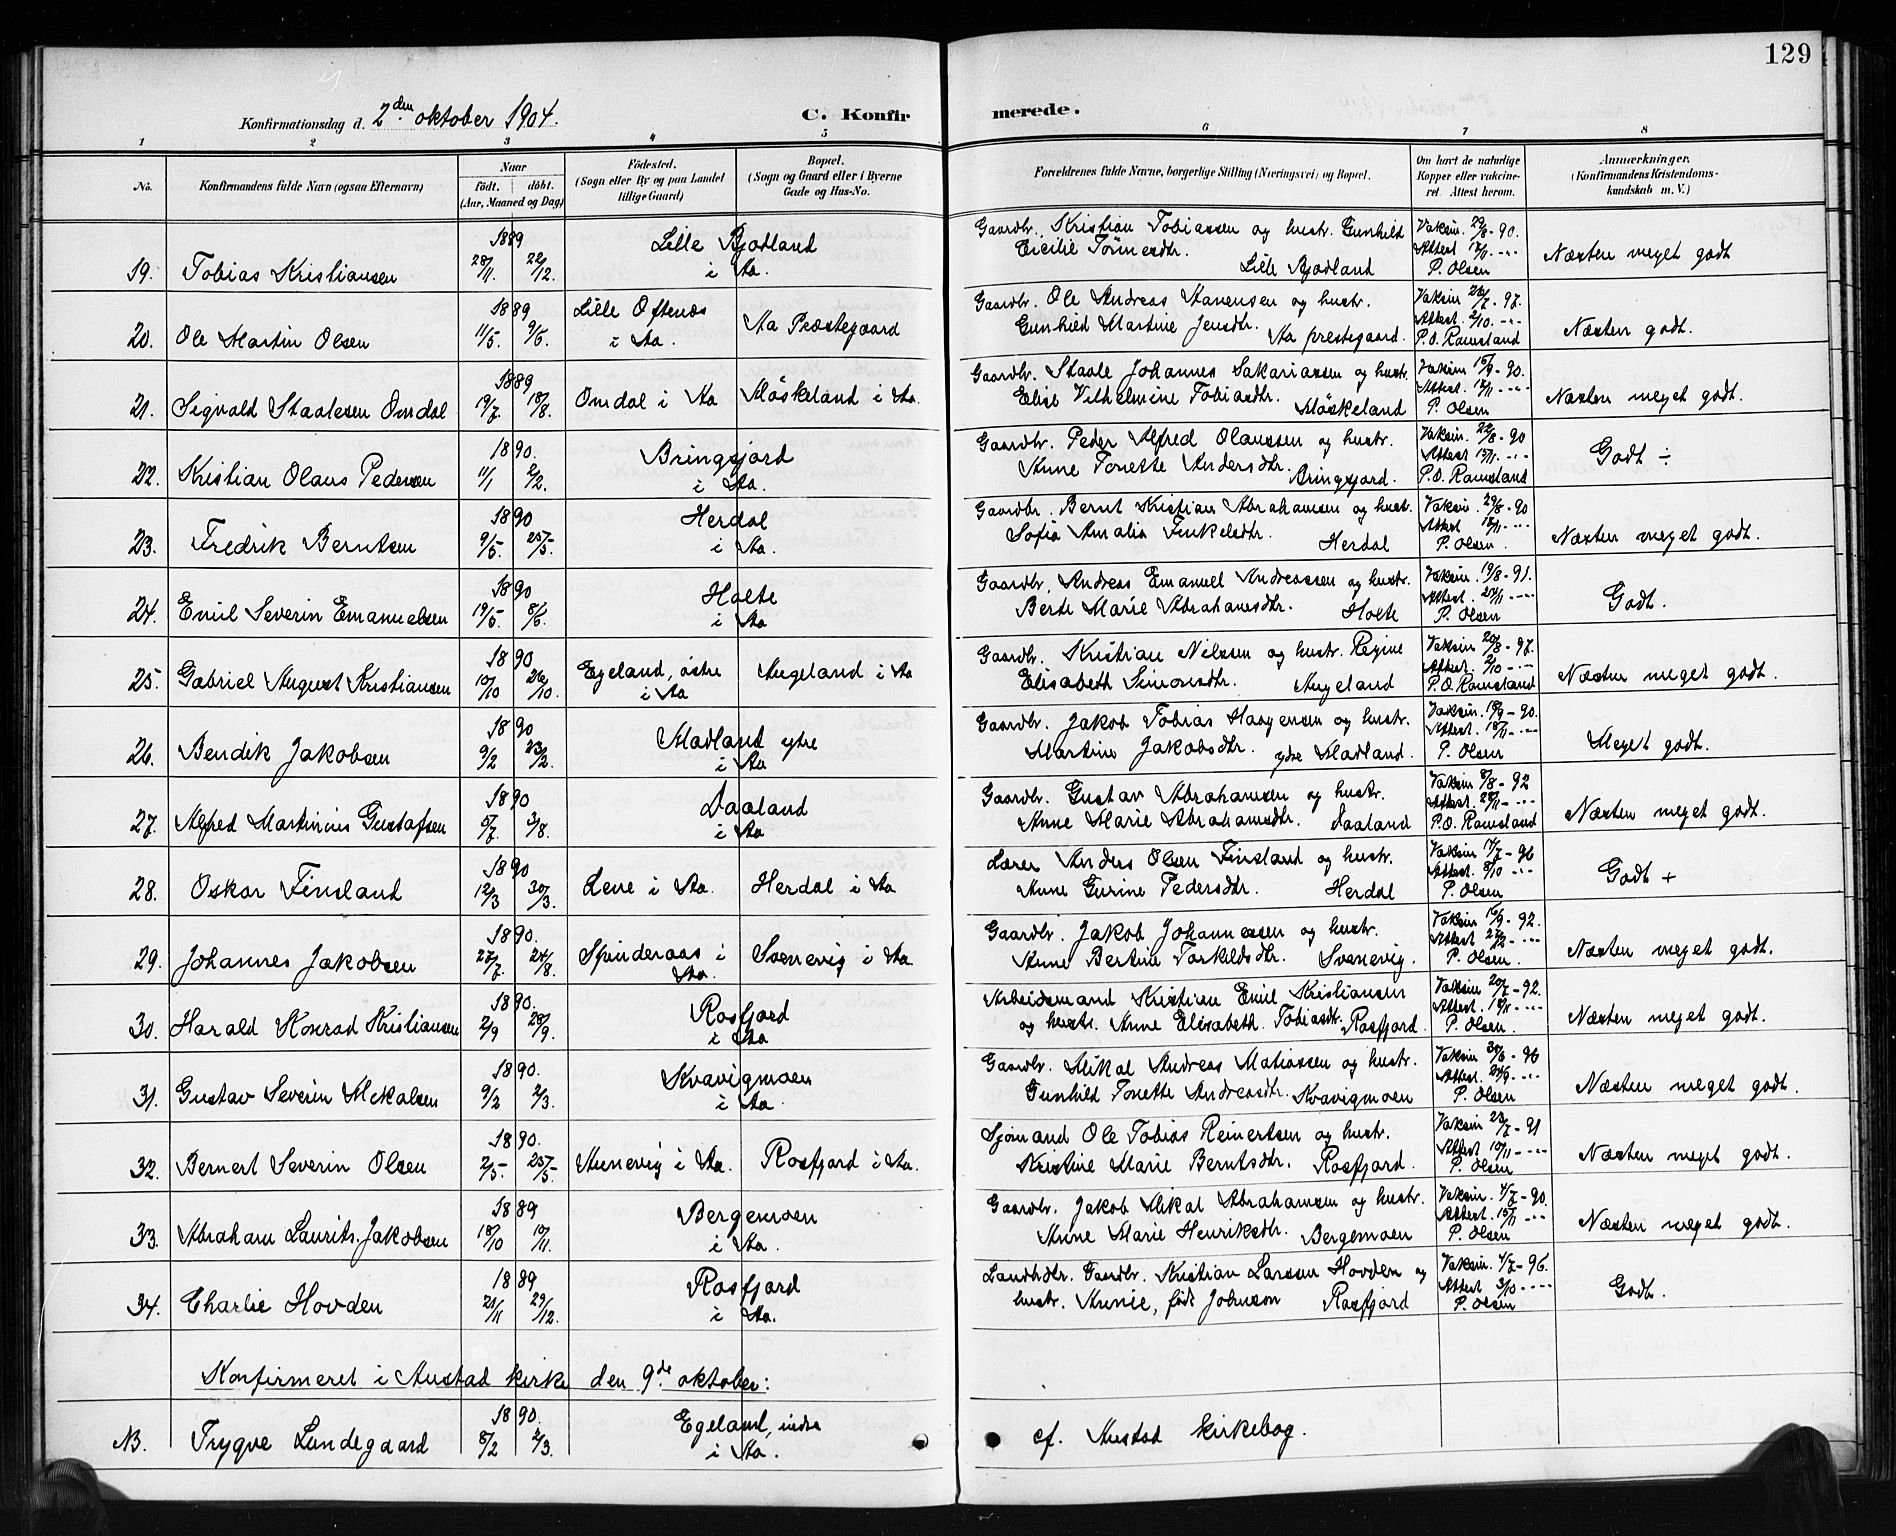 129
Konfirmationsdag d. 2den oktober 1904.
C. Konfir merede.
1 2 3 4 5 6 7 8
No.
Konfirmandens fulde Navn (ogsaa Efternavn)
Naar
födt. döbt.
(Aar, Maaned og Dag)
Födested.
(Sogn eller By og paa Landet
tillige Gaard)
Bopæl.
(Sogn og Gaard eller i Byerne
Gade og Hus-No.
Forældrenes fulde Navne, borgerlige Stilling (Næringsvei) og Bopæl.
Om havt de naturlige
Kopper eller vakcine-
ret. Attest herom.
Anmærkninger.
(Konfirmandens Kristendoms-
kundskab m. V.)
19. Tobias Kristiansen
1889
28/11 22/12.
Lille Rjodland
i Aa.
Gaardbr. Kristian Tobiassen og hustr. Gunhild
Cicilie Tönnesdtr. Lille Rjodland
Vaksin. 29/8-90.
Attest. 12/11 - --
P. Olsen
Næsten meget godt
20. Ole Martin Olsen
1889
11/5. 9/6.
Lille Oftenæs
i Aa.
Aa Præstegaard
Gaardbr. Ole Andreas Aanensen og hustr.
Gunhild Martine Jensdtr. Aa prestegaard.
Vaksin 26/7-97.
Attest. 2/10. - --
P.O. Ramsland
Næsten godt.
21. Sigvald Staalesen Omdal
1889
19/7. 18/8.
Omdal i Aa
Möskeland i Aa.
Gaardbr. Staale Johannes Sakariassen og hustr.
Elise Vilhelmine Tobiasdtr. Möskeland
Vaksin 15/9-90.
Attest. 12/11 - --
P. Olsen
Næsten meget godt.
22. Kristian Olaus Pedersen
1890.
11/1 2/2.
Bringsjord
i Aa.
Gaardbr. Peder Alfred Olaussen og hustr.
Anne Tonette Andersdtr. Bringsjord.
Vaksin. 22/8-90
Attest. 13/11. - --
P.O. Ramsland
Godt ÷
23. Fredrik Berntsen
1890
9/5. 25/5.
Herdal
i Aa.
Gaardbr. Bernt Kristian Abrahamsen og hustr.
Sofia Amalia Tinkelsdtr. Herdal
Vaksin. 29/8-90
Attest 12/11 - --
P. Olsen.
Næsten meget godt.
24. Emil Severin Emanuelsen
1890
19/5. 8/6.
Holte
i Aa
Gaardbr. Andreas Emanuel Andreassen og hustr.
Berte Marie Abrahamsdtr. Holte
Vaksin. 19/8-91.
Attest. 24/11 - --
P. Olsen
Godt.
25. Gabriel August Kristiansen
1890
10/10 26/10.
Egeland, östre
i Aa
Augeland i Aa
Gaardbr. Kristian Nilssen og hustr. Regine
Elisabeth Simonsdtr. Augeland
Vaksin 20/8-97.
Attest. 2/10 - --
P.O. Ramsland
Næsten meget godt.
26. Bendik Jakobsen
1890
9/2 23/2.
Madland ytre
i Aa
Gaardbr. Jakob Tobias Haagensen og hustr.
Martine Jakobsdtr. ydre Madland.
Vaksin. 18/9-90.
Attest. 18/11 - --
P. Olsen
Meget godt.
27. Alfred Martinius Gustafsen
1890
5/7. 3/8.
Daaland
i Aa
Gaardbr. Gustav Abrahamsen og hustr.
Anne Marie Abrahamsdtr. Daaland
Vaksin 8/8-92
Attest. 28/11 - --
P.O. Ramsland
Næsten meget godt.
28. Oskar Finsland
1890
12/3 30/3.
Lene i Aa.
Herdal i Aa
Lærer Anders Olsen Finsland og hustr.
Anne Gurine Pedersdtr. Herdal
Vaksin 14/7-96
Attest 8/10 - --
P. Olsen
Godt +
29. Johannes Jakobsen
1890.
27/7. 24/8.
Spinderaas i
Aa.
Svenevig i Aa
Gaardbr. Jakob Johannessen og hustr.
Anne Bertine Torkildsdtr. Svenevig.
Vaksin 16/9-92.
P. Olsen.
Næsten meget godt.
30. Harald Konrad Kristiansen
1890.
2/9 28/9.
Rosfjord
i Aa
Arbeidsmand Kristian Emil Kristiansen
og hustr. Anne Elisabeth Tobiasdtr. Rosfjord.
Vaksin 20/7-92.
Attest. 18/11 - --
P. Olsen.
Næsten meget godt.
31. Gustav Severin Mikalsen
1890.
9/2 2/3.
Kvavigmoen
i Aa
Gaardbr. Mikal Andreas Matiassen og hustr.
Gunhild Tonette Andreasdtr. Kvavigmoen
Vaksin 30/6-96
Attest. 24/9 - --
P. Olsen
Næsten meget godt.
32. Bernert Severin Olsen
1890.
2/5. 25/5.
Aunevig i Aa.
Rosfjord i Aa.
Sjömand Ole Tobias Reinertsen og hustr.
Kristine Marie Berntsdtr. Rosfjord.
Vaksin 23/7-91
Attest 10/11 - --
P. Olsen
Næsten meget godt.
33. Abraham Laurits Jakobsen
1889
18/10 10/11.
Bergemoen
i Aa.
Gaardbr. Jakob Mikal Abrahamsen og hustr.
Anne Marie Henriksdtr. Bergemoen
Vaksin. 4/7-90.
Attest. 15/11 - --
P. Olsen
Næsten meget godt.
34. Charlie Hovden
1889
21/11 29/12.
Rosfjord
i Aa.
Landhdlr. Gaardbr. Kristian Larssen Hovden og
hustr. Annie, födt Johnson Rosfjord
Vaksin. 4/7-96.
Attest 3/10 - --
P. Olsen
Godt.
Konfirmeret i Austad kirke den 9de oktober:
NB. Trygve Lundegaard
1890.
8/2 2/3.
Egeland, indre
i Aa.
cf. Austad kirkebog.